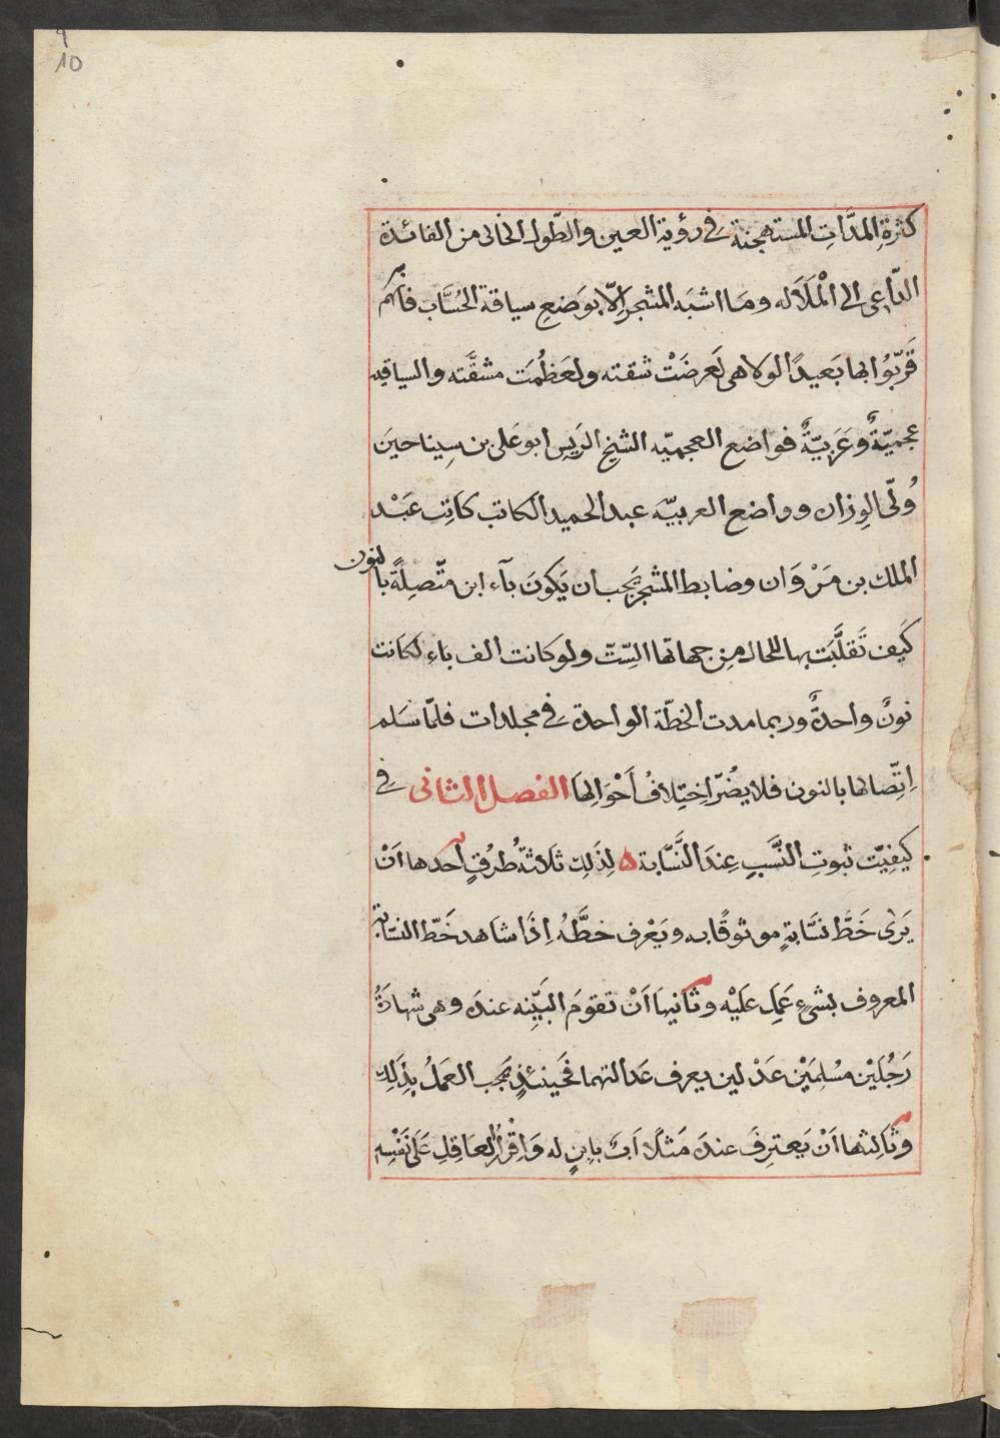 ٩
10
كثرةِ المدَّاتِ المستهجنة في رؤية العين والطّول الخالى من الفائدة
الدّاعى الى الْمَلَاَله ومَا اشبَه المشجر اِلّا بوَضعِ سياقة الحُسَّاب فانّهم
قَرّبُوا بها بَعيدًا لولاهى لَعرضَتْ شقته ولعَظُمَت مشقَّته والسياقيه
عجميّةٌ وعَرَبيّةٌ فواضع العجميّه الشيخ الرَيس ابو عَلى بن سِينا حينَ
وُلّى الوِزان وواضع العربيّه عبد الحميد الكاتب كاتِب عَبْد
الملك بن مَرْوَان وضابط المشجر يَجب ان يَكونَ بآء ابن متّصِلةً بالنون
كَيف تَقلَّبَت بها الحال مِن جهاتها السِّتّ ولو كانت الف باءٍ لكانت
نونٌ واحدةٌ وربما مدت الخطّة الواحدة في مجلدات فلمّا سَلم
اِتِّصالها بالنون فلا يضُرّ اِختِلافُ اَحْوَالِهَا الفصل الثانى في
كيفِيّت ثبوتِ النَّسَبِ عِندَ النَّسّابة ۵ لِذَلِك ثَلاثةُ طُرُقٍ اَحدها اَنْ
يَرٰى خَطَّ نسَّابةٍ موثوقًا به ويَعْرف خطَّهُ اِذَا شاهد خَطّ النسّابة
المعروف بشىءٍ عَمِل عَلَيْه وثانيهَا اَنْ تقومَ البَيِّنه عندَه وهى شهادَةُ
رَجُلَيْن مسْلِمَيْن عَدْلين يعرف عَدالتهما فحَينئذٍ يجب العَمَلُ بِذَلِك
وثالثها اَنْ يَعترِفَ عندَه مَثلًا اَبٌ بابنٍ له وَاِقْرارُ العَاقِلِ عَلى نَفْسِه